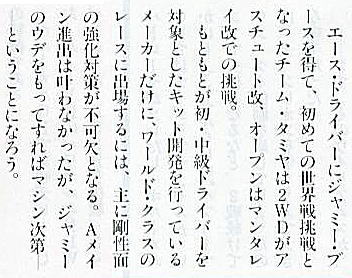 エース・ドライバーにジャミー・ブ
ースを得て、初めての世界戦挑戦と
なったチーム・タミヤは2WDがア
スチュート改、オープンはマンタレ
イ改での挑戦。
もともとが初・中級ドライバーを
対象としたキット開発を行っている
メーカーだけに、ワールド・クラスの
レースに出場するには、主に剛性面
の強化対策が不可欠となる。Aメイ
ン進出は叶わなかったが、ジャミー
のウデをもってすればマシン次第
ということになろう。